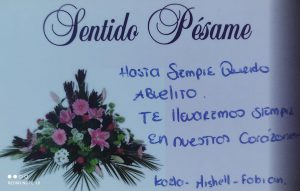 Sentido Pésame
Hasta Sempre Querido
Abuelito.
Te lloremos siempre
en nuestros Corazones
- Mishell - Fabian.